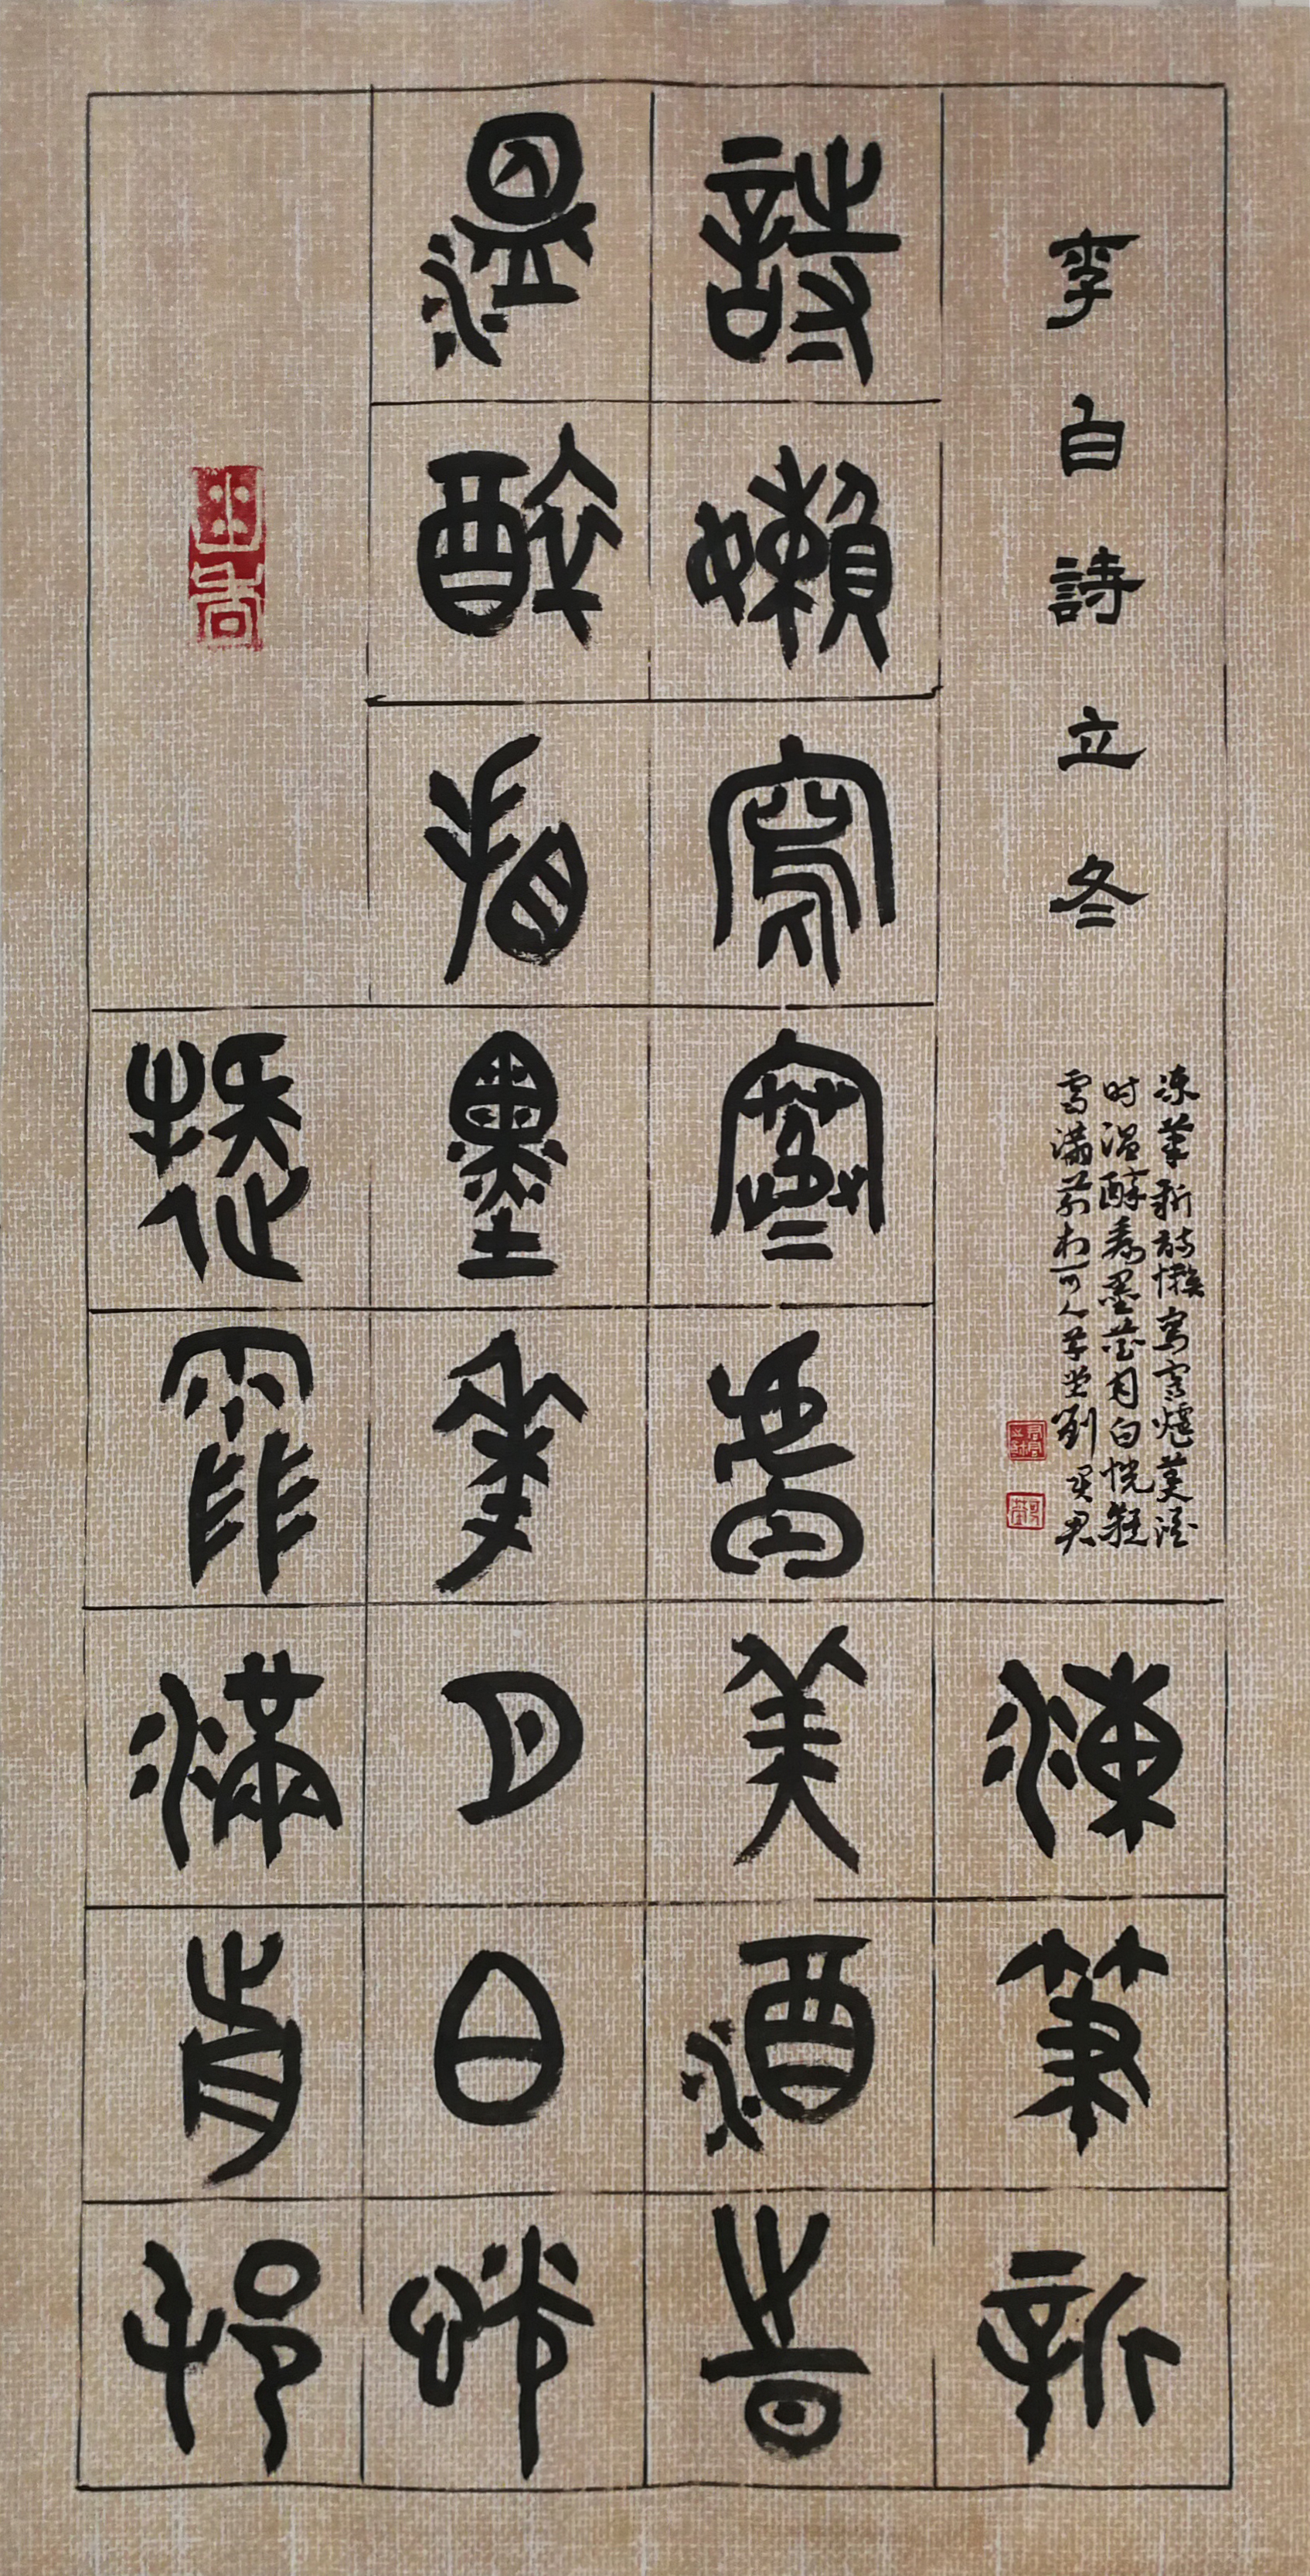 李白詩立冬
凍筆新詩懶寫寒爐美酒
时温醉看墨花月白恍疑
雪滿前村可人草堂劉君
凍筆新
詩嬾寫寒盧美酒時
溫醉看墨花月白恍
疑雪滿前村